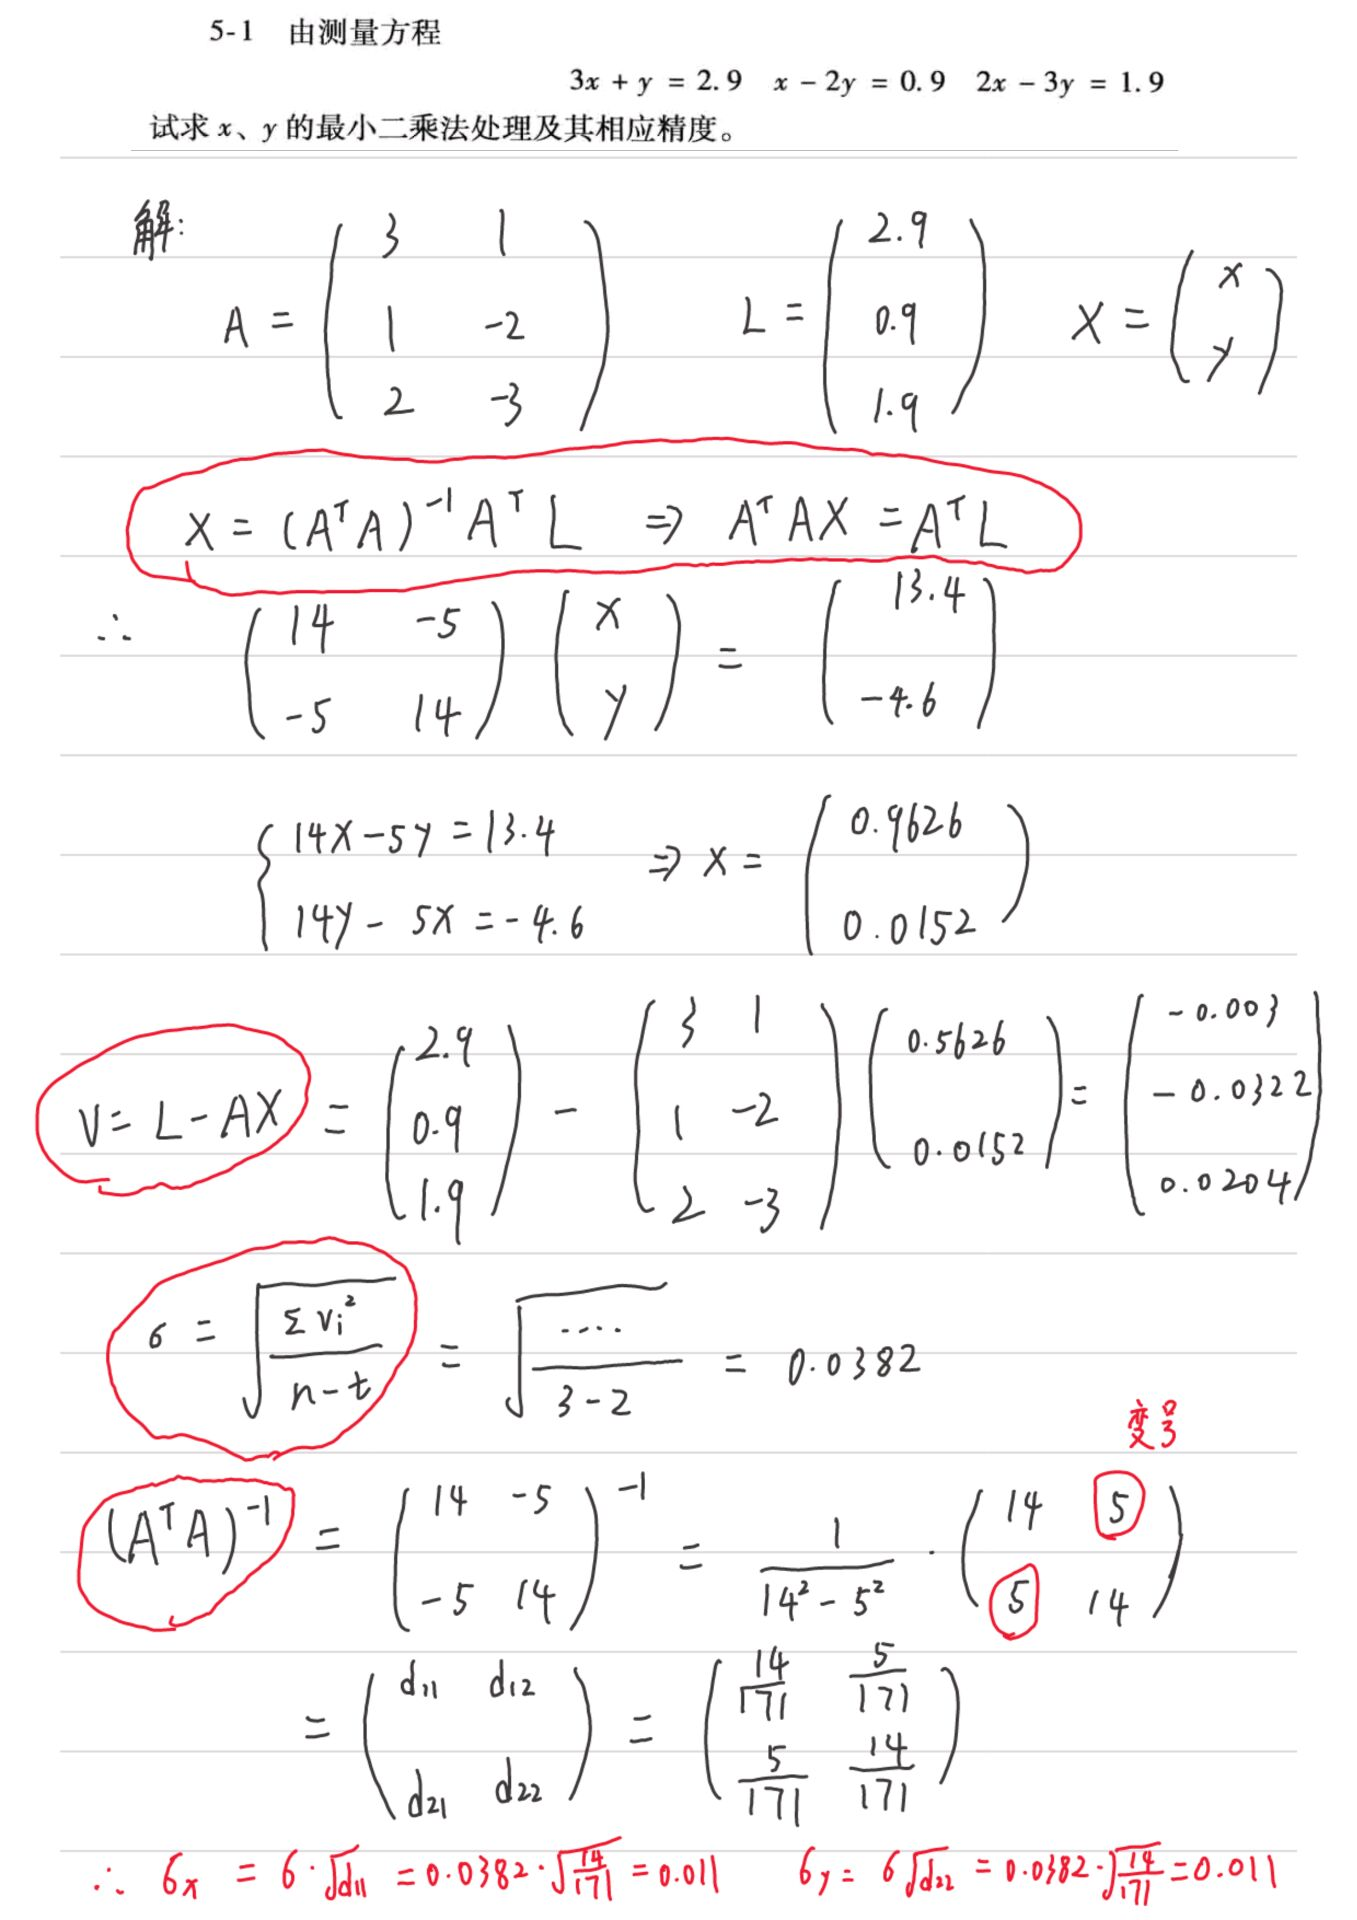 5-1 由测量方程
3x + y = 2.9 x - 2y = 0.9 2x - 3y = 1.9
试求 x、y 的最小二乘法处理及其相应精度。
解: A = ( 3 1 ; 1 -2 ; 2 -3 ) L = ( 2.9 ; 0.9 ; 1.9 ) X = ( x ; y )
X = (AᵀA)⁻¹AᵀL ⇒ AᵀAX = AᵀL
∴ ( 14 -5 ; -5 14 ) ( x ; y ) = ( 13.4 ; -4.6 )
{ 14x-5y = 13.4 ; 14y - 5x = -4.6 ⇒ X = ( 0.9626 ; 0.0152 )
V = L - AX = ( 2.9 ; 0.9 ; 1.9 ) - ( 3 1 ; 1 -2 ; 2 -3 ) ( 0.5626 ; 0.0152 ) = ( -0.003 ; -0.0322 ; 0.0204 )
σ = √(Σvᵢ² / (n-t)) = √(.... / (3-2)) = 0.0382
变号
(AᵀA)⁻¹ = ( 14 -5 ; -5 14 )⁻¹ = 1/(14² - 5²) · ( 14 5 ; 5 14 )
= ( d₁₁ d₁₂ ; d₂₁ d₂₂ ) = ( 14/171 5/171 ; 5/171 14/171 )
∴ σx = σ·√d₁₁ = 0.0382·√(14/171) = 0.011 σy = σ√d₂₂ = 0.0382·√(14/171) = 0.011